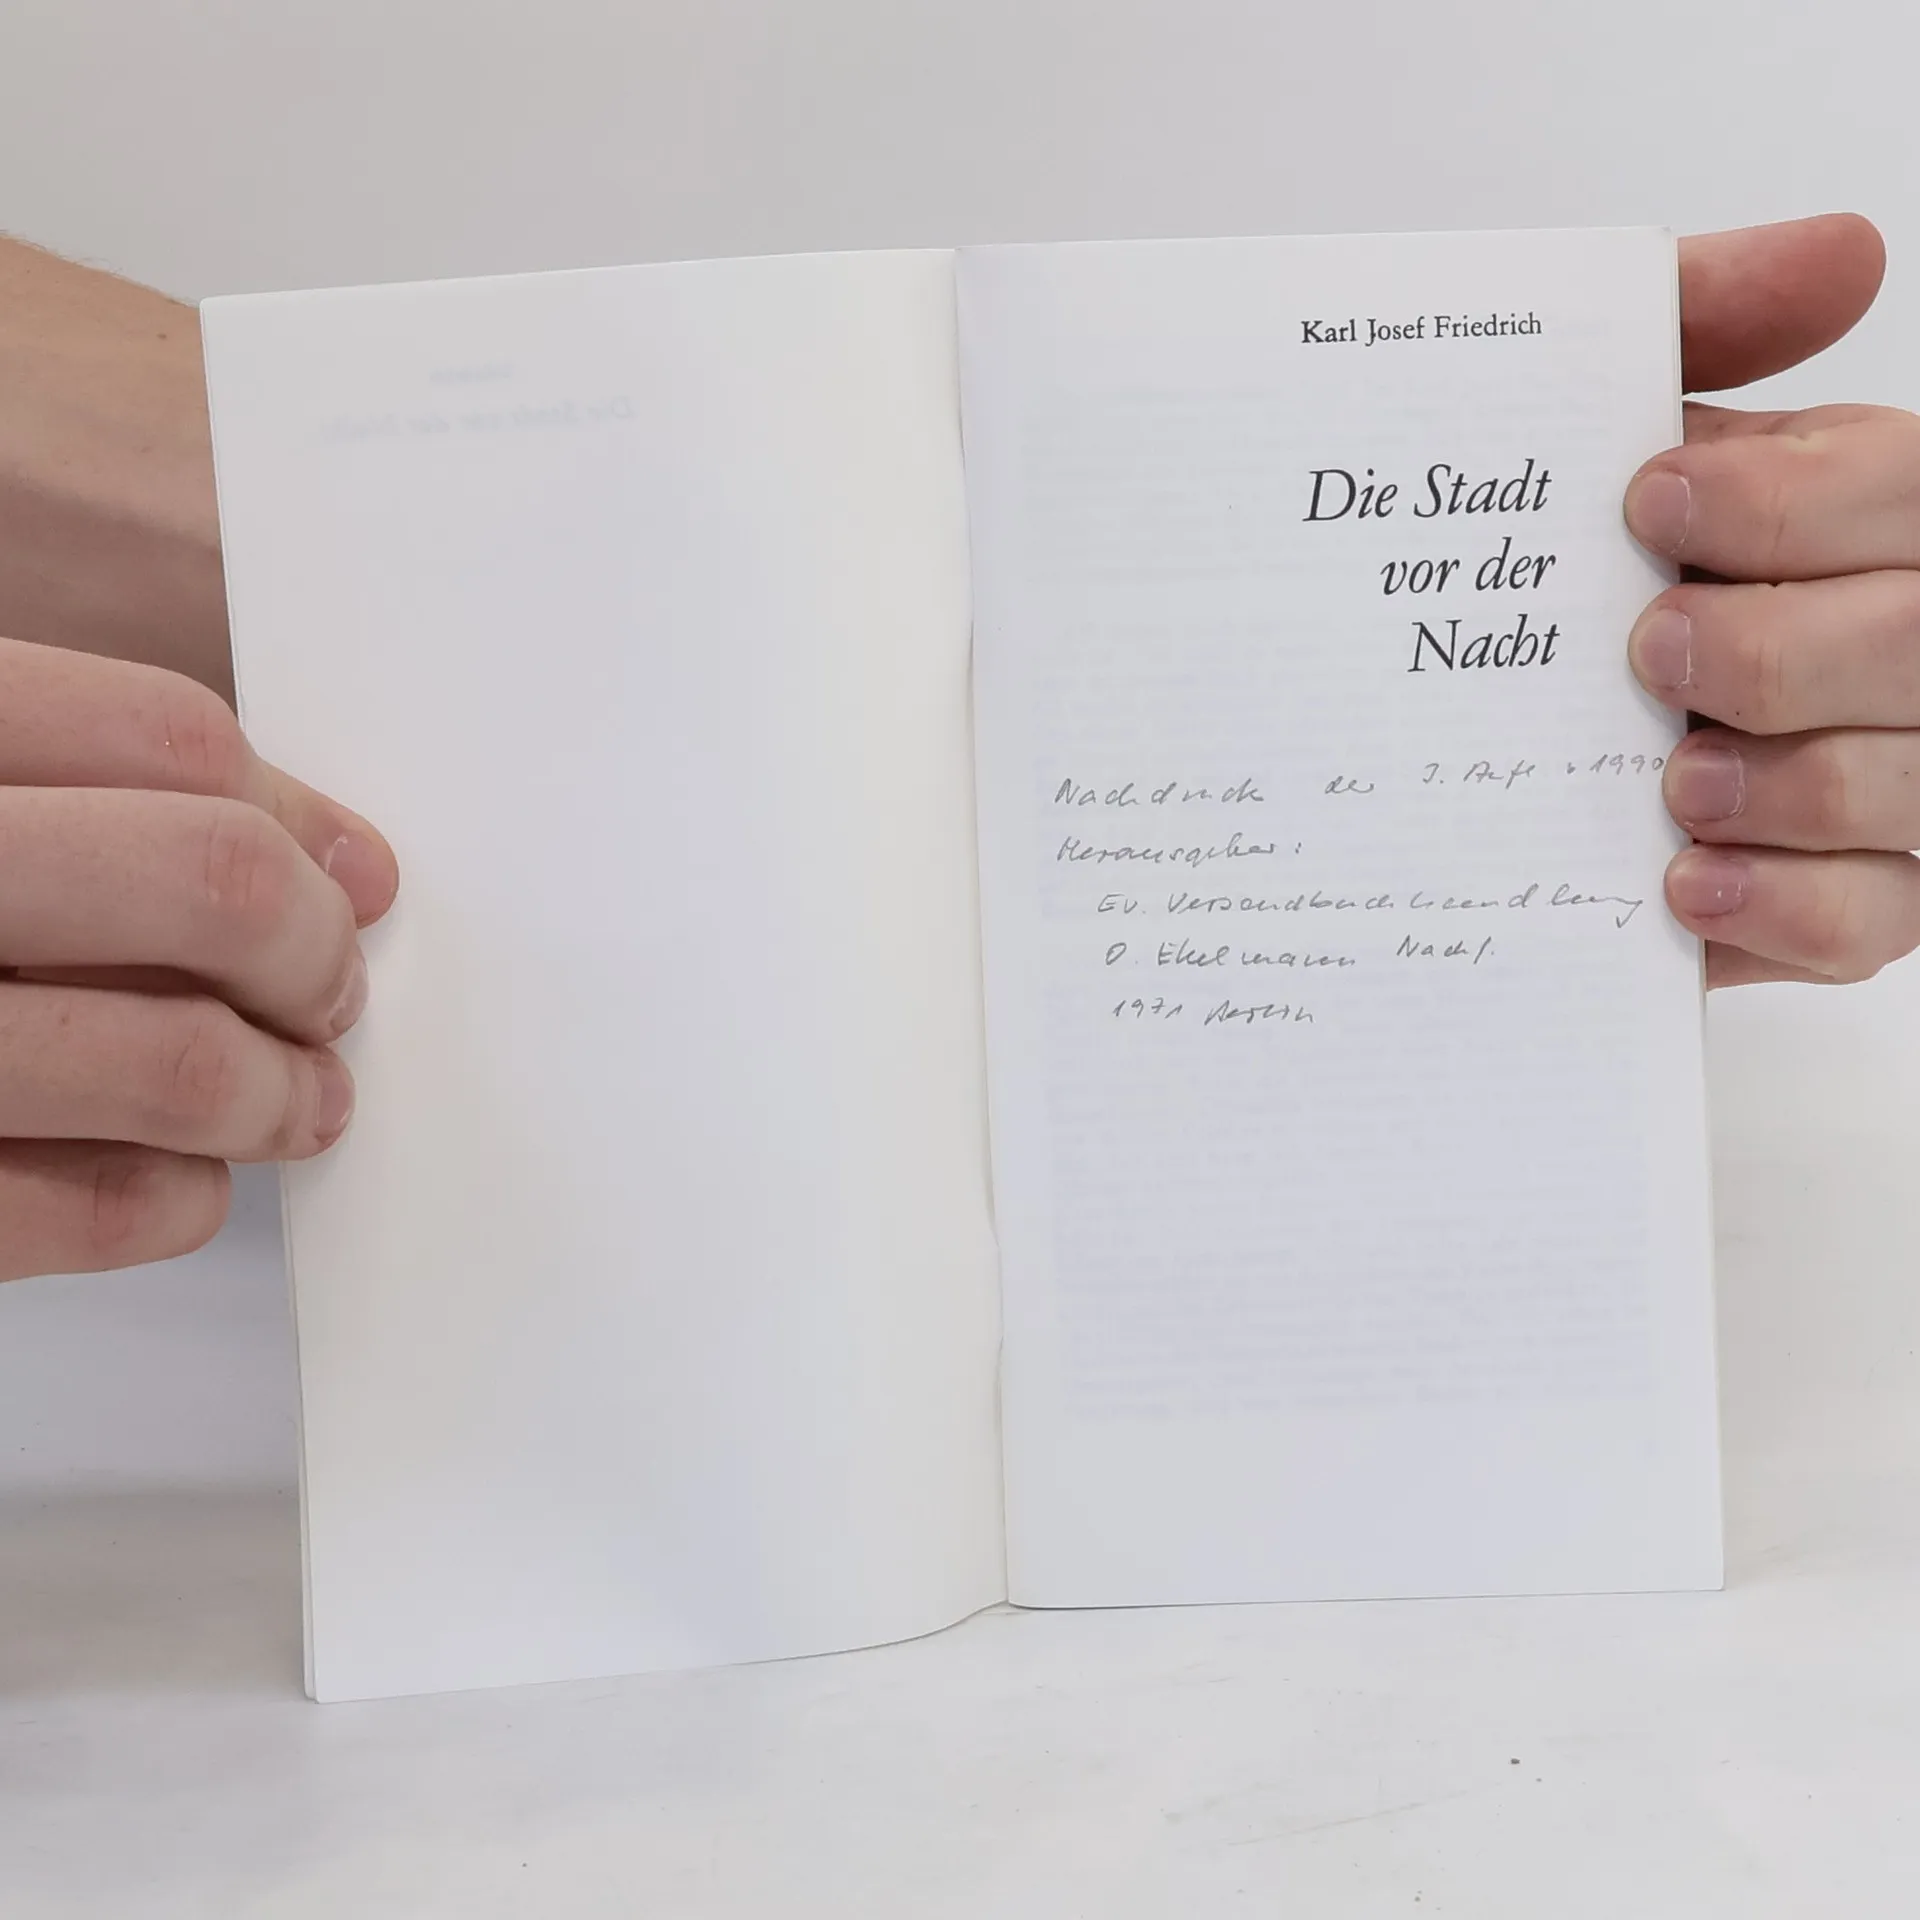 Karl Josef Friedrich
Die Stadt
vor der
Nacht
Nachdruck der 3. Aufl. 1990
Herausgeber:
Ev. Versandbuchhandlung
O. Ekelmann Nachf.
1971 Berlin